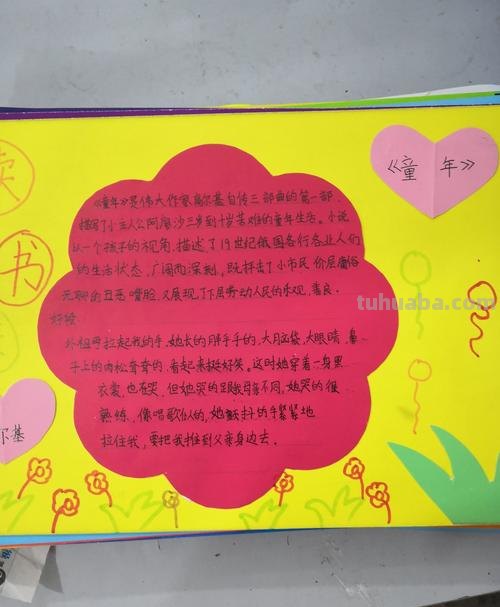 读
书
《童年》
《童年》是伟大作家高尔基自传三部曲的第一部.
描写了小主人公阿廖沙三岁到十岁苦难的童年生活。小说
以一个孩子的视角.描述了19世纪俄国各行各业人们
的生活状态.广阔而深刻.既抨击了小市民价层庸俗
无聊的丑恶嘴脸.又展现了下层劳动人民的乐观.善良.
好段:
外祖母拉起我的手.她长的胖乎乎的.大月亮袋.大眼睛.鼻
子上的肉松奔奔的.看起来挺好笑。这时她穿着一身黑
衣裳,也在哭,但她哭的跟我母亲不同,她哭的很
熟练,像唱歌似的,她颤抖的手紧紧地
拉住我,要把我推到父亲身边去.
尔基
tuhuaba.com